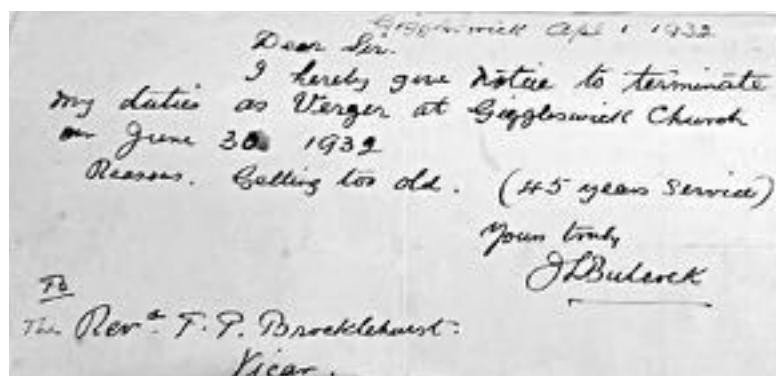 Giggleswick Apl 1 1932
Dear Sir.
I hereby give notice to terminate
my duties as Verger at Giggleswick Church
on June 30 1932
Reasons. Getting too old. (45 years Service)
Yours truly
J L Bulcock
To
The Revd. T. P. Brocklehurst.
Vicar.